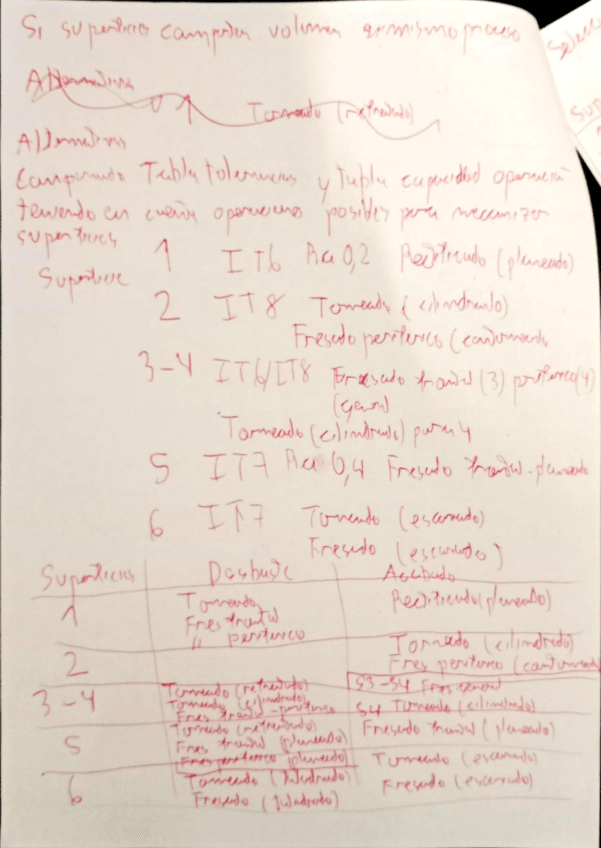 Si superficies comparten volumen en mismo proceso
Alternativas
Torneado (refrentado)
Alternativas
Comparando Tabla tolerancias y tabla capacidad operación
teniendo en cuenta operaciones posibles para mecanizar
superficies
Superficie
1 IT6 Ra 0,2 Rectificado (planeado)
2 IT8 Torneado (cilindrado)
Fresado periferico (contorneado
3-4 IT6/IT8 Fresado frontal (3) periferico (4)
Torneado (cilindrado) para 4
5 IT7 Ra 0,4 Fresado frontal-planeado
6 IT7 Torneado (escariado)
Fresado (escariado)
Superficies Desbaste Acabado
1 Torneado Rectificado (planeado)
Fres frontal
" periferico
2 Torneado (cilindrado)
Fres periferico (contorneado)
3-4 Torneado (refrentado) S3-S4 Fres
Torneado (cilindrado) S4 Torneado (cilindrado)
Fres frontal-periferico
5 Torneado (refrentado) Fresado frontal (planeado)
Fres frontal (planeado)
Fres periferico (planeado)
6 Torneado (taladrado) Torneado (escariado)
Fresado (taladrado) Fresado (escariado)